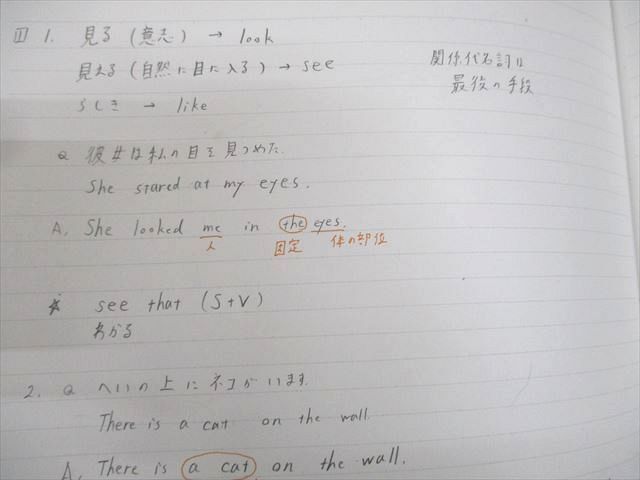 II 1. 見る (意志) → look
見える (自然に目に入る) → see
らしき → like
関係代名詞は
最後の手段
Q 彼女は私の目を見つめた.
She stared at my eyes.
A. She looked me in the eyes.
人 固定 体の部位
* see that (S+V)
わかる
2. Q へいの上にネコがいます.
There is a cat on the wall.
A. There is a cat on the wall.